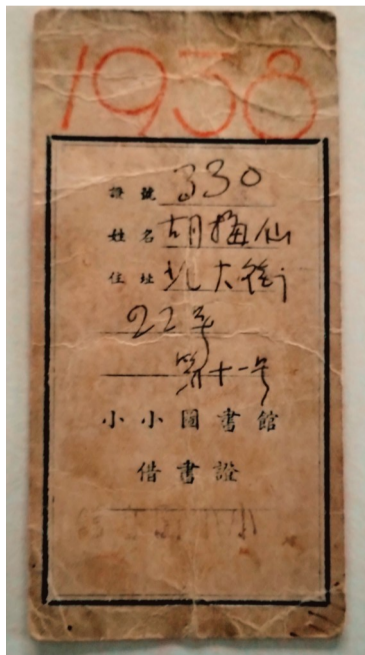 1938
證號 330
姓名 胡梅仙
住址 北大街
22号
第十一号
小小圖書館
借書證